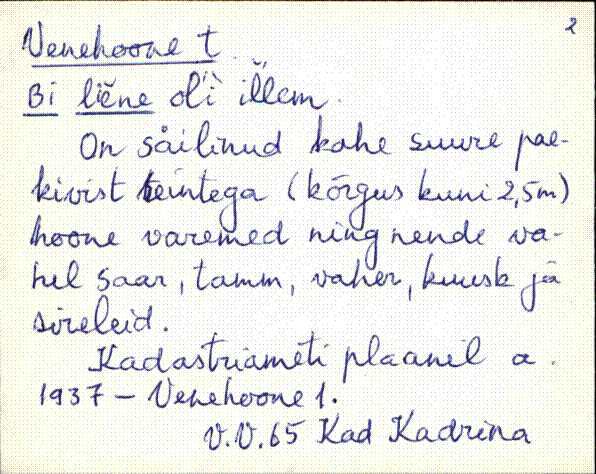 2
Venehoone t.
Bi liĕne ol'i illem.
On säilinud kahe suure pae-
kivist seintega (kõrgus kuni 2,5m)
hoone varemed ning nende va-
hel saar, tamm, vaher, kuusk ja
sireleid.
Kadastriameti plaanil a.
1937 – Venehoone 1.
V.V.65 Kad Kadrina